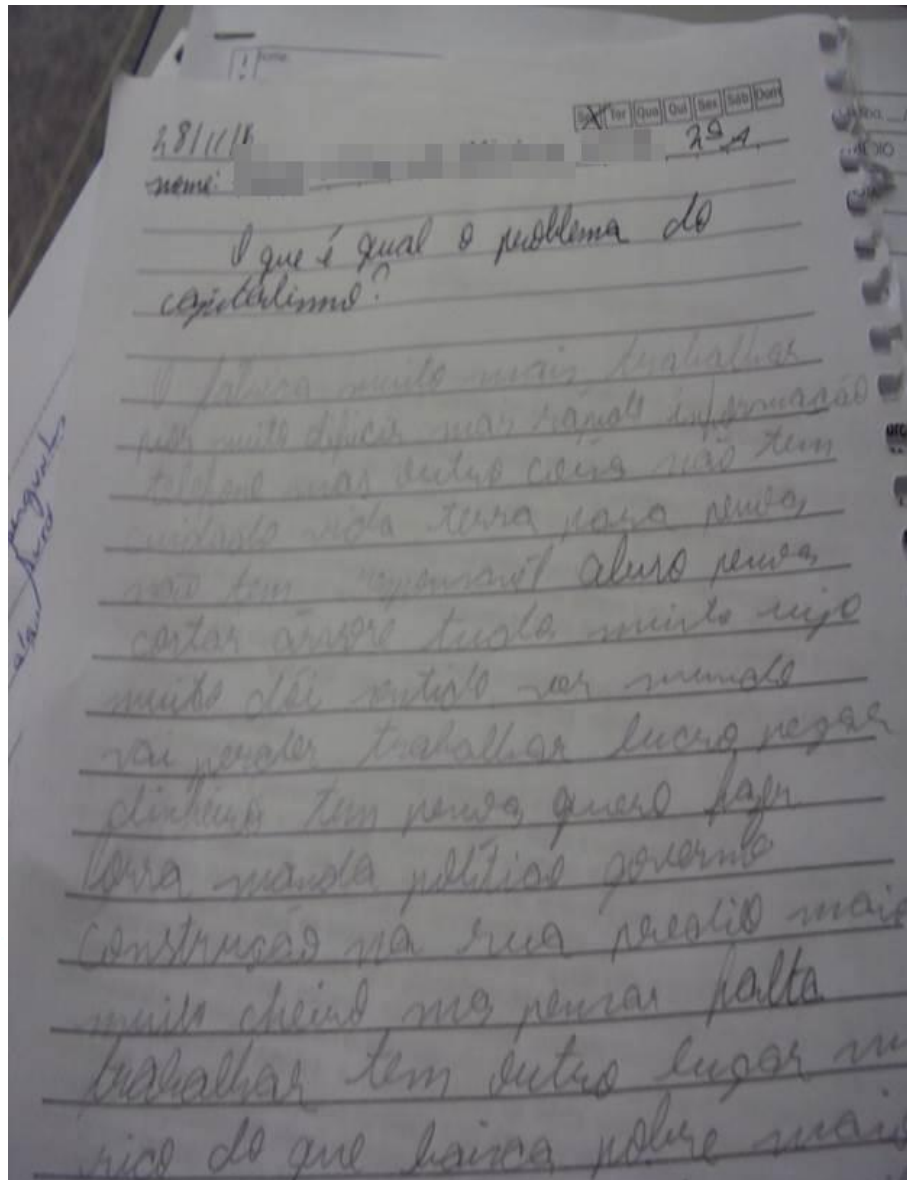 nome:
Seg Ter Qua Qui Sex Sáb Dom
28/11/16
2º A
nome:
O que é qual o problema do
capitalismo?
O fabrica muito mais trabalhar
por muito dificis mas rápido informação
telefone mas outro coisa não tem
cuidado vida terra para pensa
não tem responsavel abuso pensa
cortar árvore tudo muito sujo
muito dói sentido ver mundo
vai perder trabalhar lucro pegar
dinheiro tem pensa quero fazer
manda politico governo
construção na rua predio mais
muito cheiro mas pensar falta
trabalhar tem outro lugar
rico do que baixa pobre mais